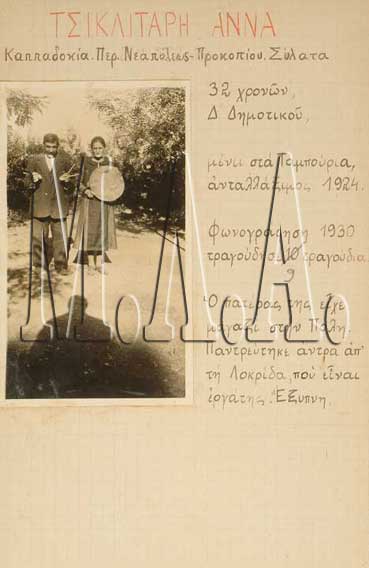 ΤΣΙΚΛΙΤΑΡΗ ΑΝΝΑ
Καππαδοκία. Περ. Νεαπόλεως - Προκοπίου. Σύλατα
32 χρονῶν,
Δ. Δημοτικοῦ,
μένει στά Ταμπούρια,
ἀνταλλάξιμος 1924.
Φωνογράφηση 1930
τραγούδησε 10 τραγούδια.
9
Ὁ πατέρας της εἶχε
μαγαζί στήν Πόλη.
Παντρεύτηκε ἄντρα ἀπ'
τή Λοκρίδα, πού εἶναι
ἐργάτης. Ἔξυπνη.
M.L.A.